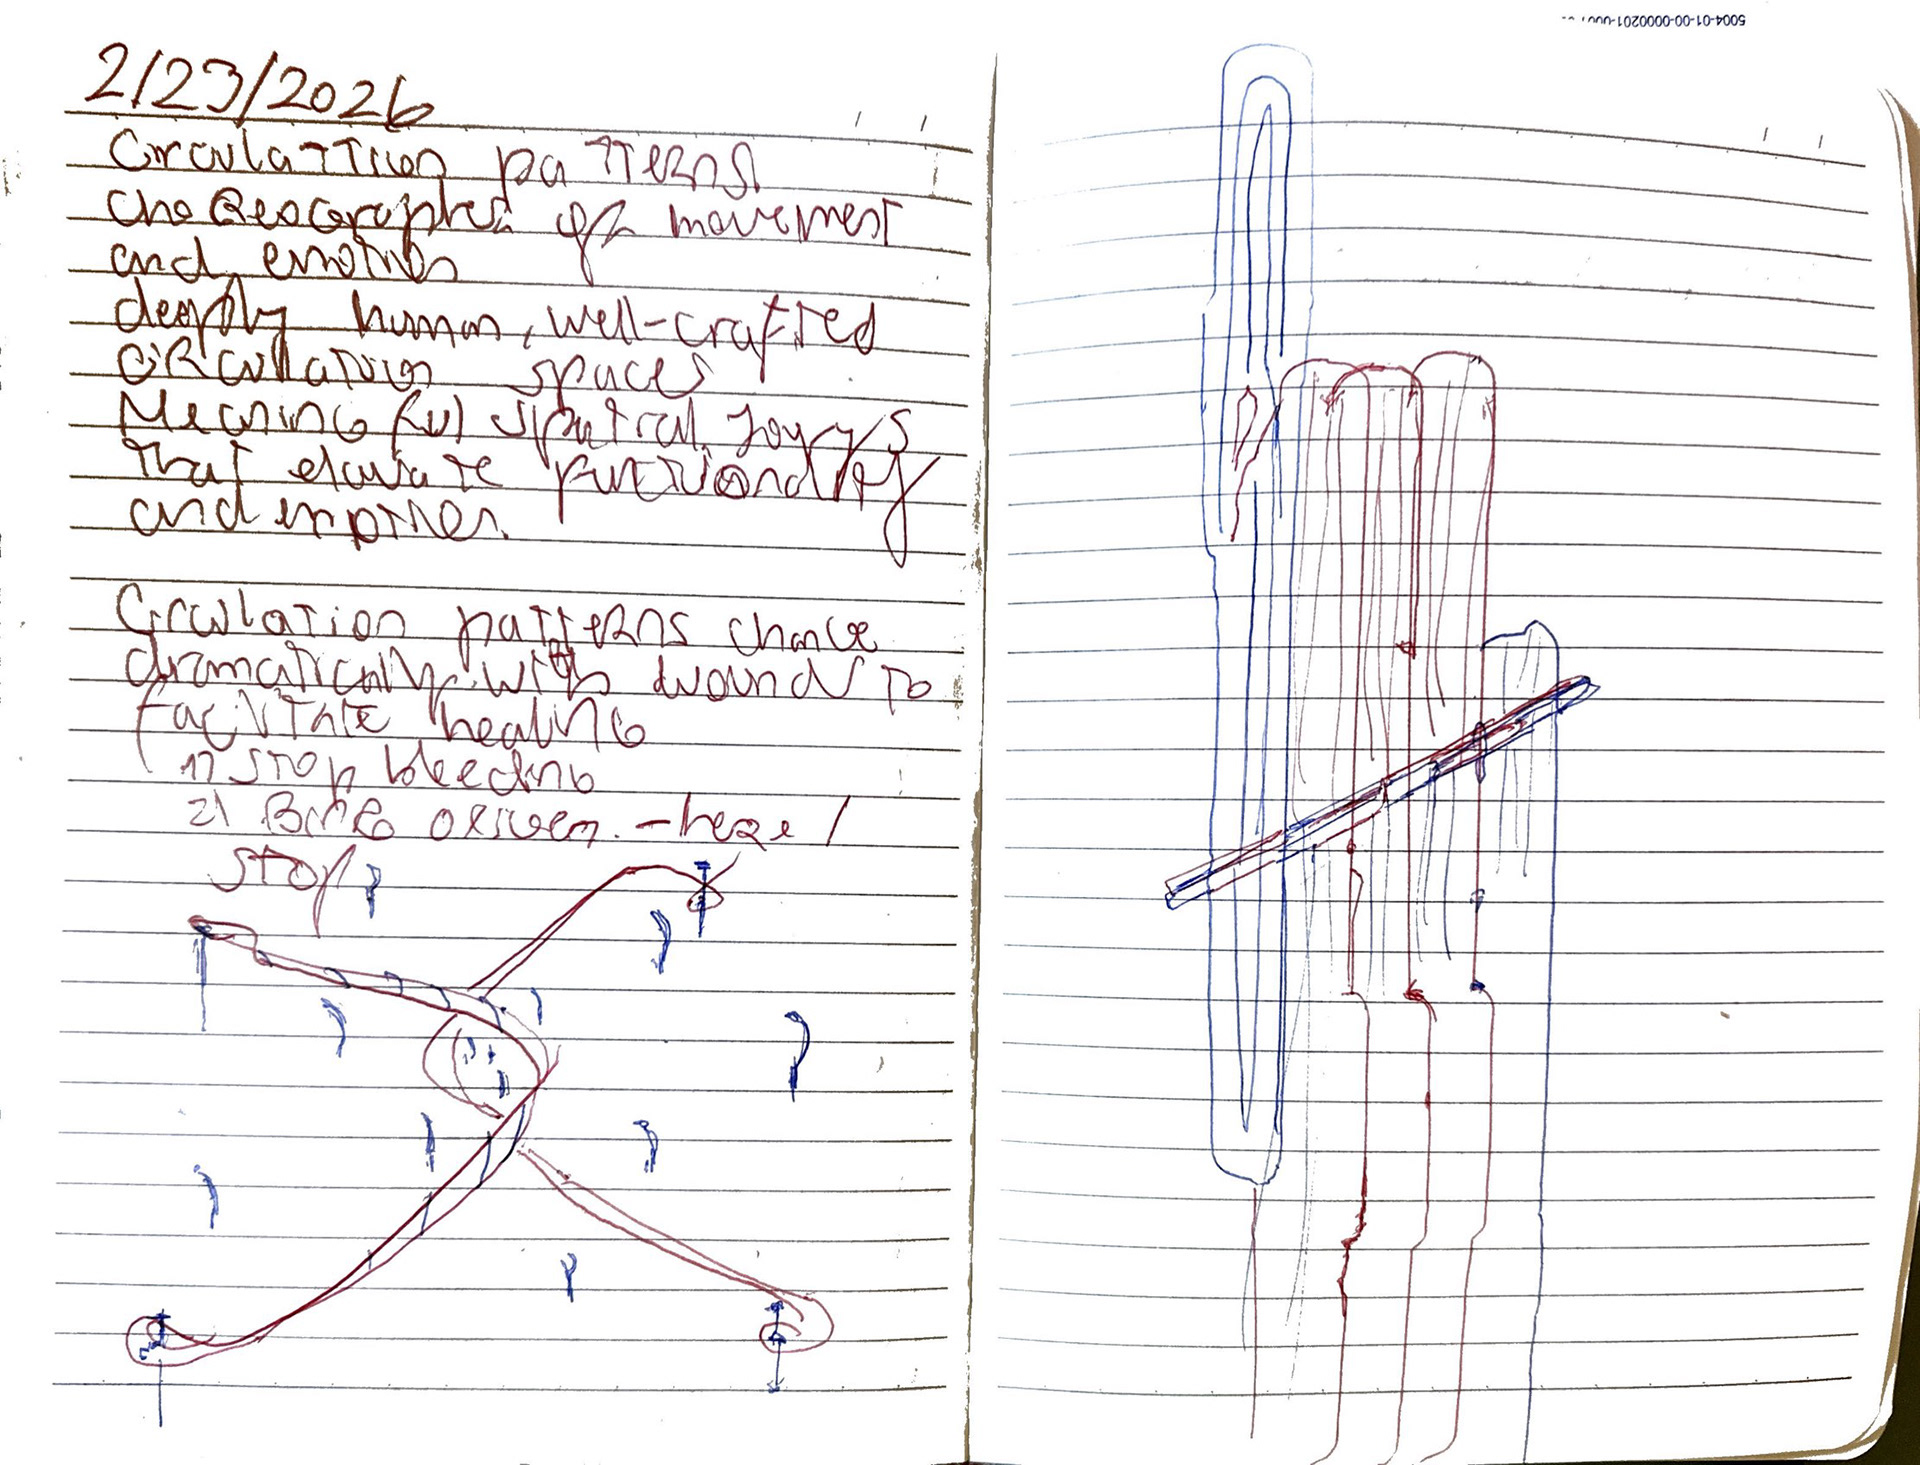 2/23/2026
Circulattion patterns
choreographs of movement
and emotion
deeply human, well-crafted
circulation spaces
Meaning ful spatial joys
that elevate functionality
and inspires.
Circulation patterns change
dramatically with wound to
facilitate healing
1) stop bleeding
2) Bring oxigen - here /
stop
5004-01-00-00000201-000